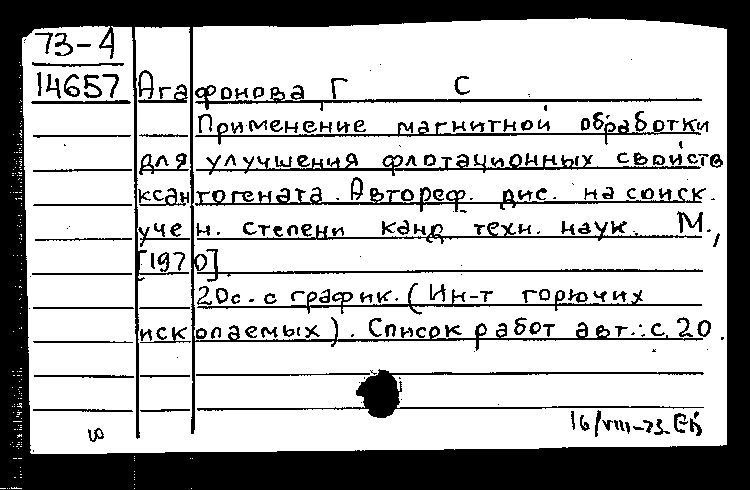 73-4
14657 Агафонова Г С
Применение магнитной обработки
для улучшения флотационных свойств
ксантогената. Автореф. дис. на соиск.
учен. степени канд техн. наук. М.,
[1970].
20с. с график. (Ин-т горючих
ископаемых). Список работ авт.: с. 20.
16/VIII-73. ЕБ